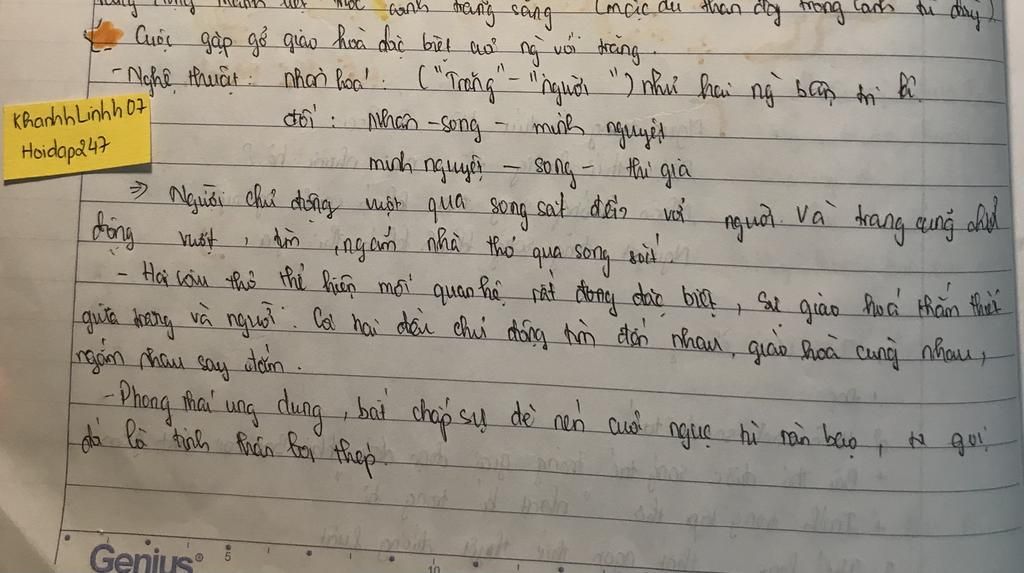 trăng sáng (mặc dù thân đây trong cảnh tù đày)
Cuộc gặp gỡ giao hoà đặc biệt của ng với trăng.
- Nghệ thuật: nhân hoá: ("Trăng" - "người") như hai ng bạn tri kỉ
đối: Nhân - song - minh nguyệt
minh nguyệt - song - thi gia
KhanhhLinhh07
Hoidap247
⇒ Người chủ động vượt qua song sắt đến với người Và trăng cũng chủ
động vượt, tìm, ngắm nhà thơ qua song sắt.
- Hai câu thơ thể hiện mối quan hệ rất đong đặc biệt, sự giao hoà thắm thiết
giữa trăng và người. Cả hai đều chủ động tìm đến nhau, giao hoà cùng nhau,
ngắm nhau say đắm.
- Phong thái ung dung, bất chấp sự đè nén của ngục tù tàn bạo, ta gọi
đó là tinh thần thép.
Genius
5
10